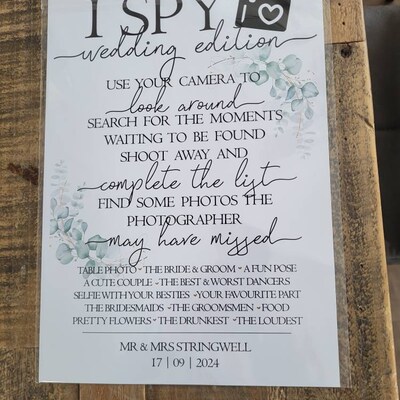 I SPY
wedding edition
USE YOUR CAMERA TO
look around
SEARCH FOR THE MOMENTS
WAITING TO BE FOUND
SHOOT AWAY AND
complete the list
FIND SOME PHOTOS THE
PHOTOGRAPHER
may have missed
TABLE PHOTO - THE BRIDE & GROOM - A FUN POSE
A CUTE COUPLE - THE BEST & WORST DANCERS
SELFIE WITH YOUR BESTIES - YOUR FAVOURITE PART
THE BRIDESMAIDS - THE GROOMSMEN - FOOD
PRETTY FLOWERS - THE DRUNKEST - THE LOUDEST
MR & MRS STRINGWELL
17 | 09 | 2024